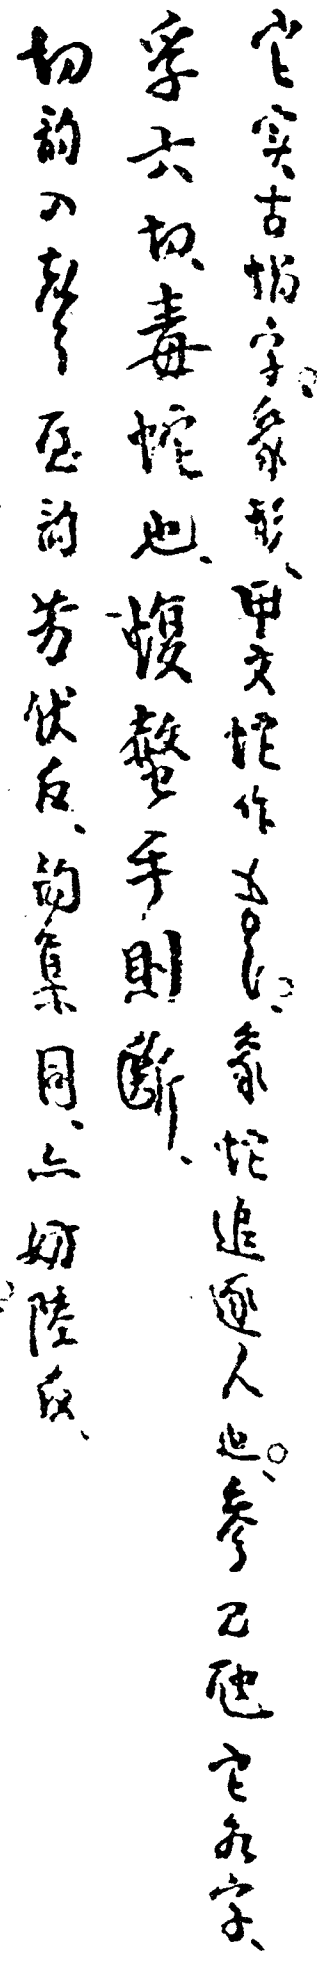 它实古字。象形、甲文蛇作。象蛇追逐人也。参巳虵它各字、
孚六切、毒蛇也、蝮螫手則斷、
切韵入聲屋韵芳伏反、韵集同、亦妨陸反、